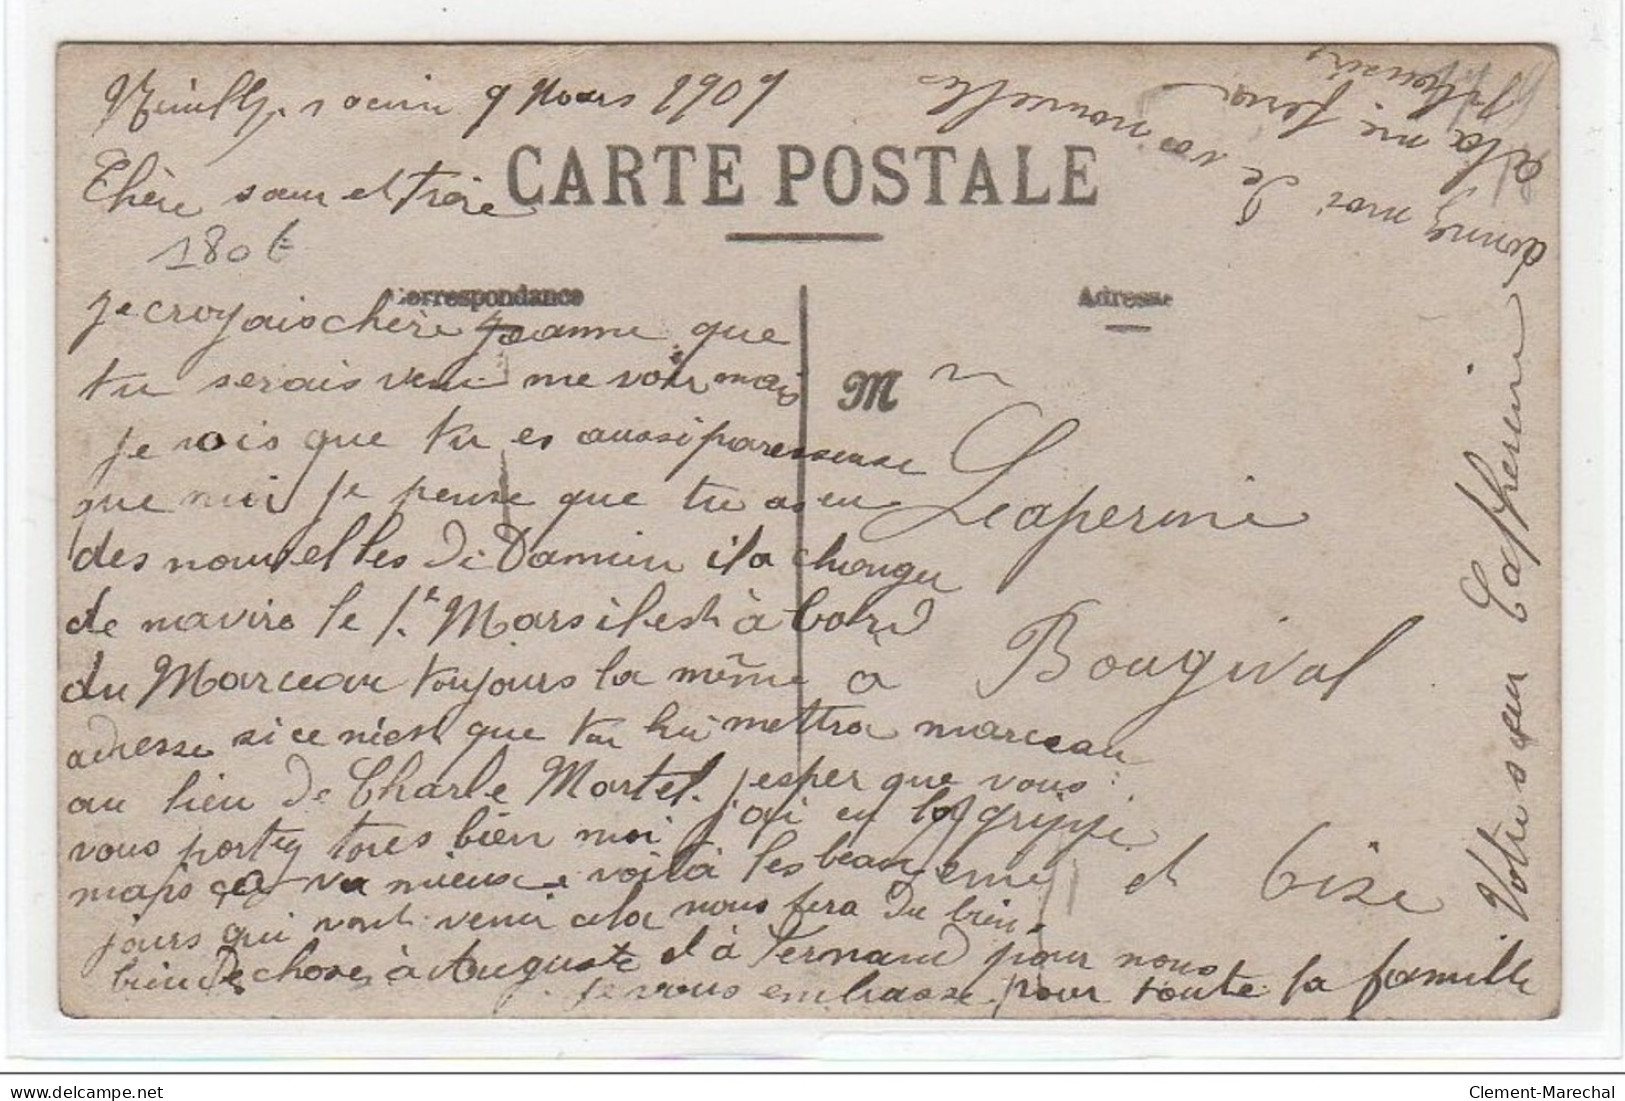 Neuilly, 9 Mars 1909
CARTE POSTALE
Chère sœur et frère
180 €
Correspondance
Adresse
je croyais chère Jeanne que
tu serais venu me voir mais
je vois que tu es aussi paresseuse
que moi je pense que tu as eu
des nouvelles de Damien il a changer
de navire le 1er Mars il est à bord
du Marceau toujours la même
adresse si ce n'est que tu lui mettra marceau
au lieu de Charle Martel. j'esper que vous
vous portez tres bien moi j'ai eu la grippe
mais ça va mieux voilà les beaux
jours qui vont venir cela nous fera du bien.
bien de chose à Auguste et à Fernand pour nous
je vous embrasse pour toute la famille
Votre sœur Catherine
donnez moi de vos nouvelles
cela me fera
plaisir
M
Laperine
à Bougival
Seine et Oise
Clement-Marechal